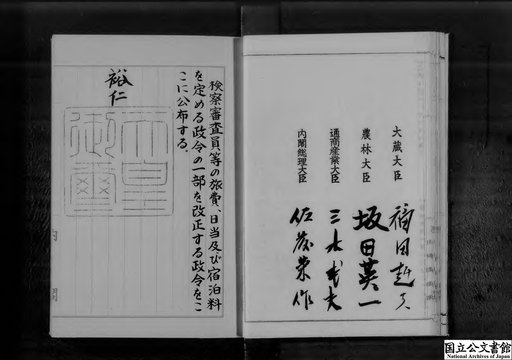 大蔵大臣 福田赳夫
農林大臣 坂田英一
通商産業大臣 三木武夫
内閣総理大臣 佐藤榮作
検察審査員等の旅費、日当及び宿泊料
を定める政令の一部を改正する政令をこ
こに公布する。
裕仁
天皇
御璽
国立公文書館
National Archives of Japan